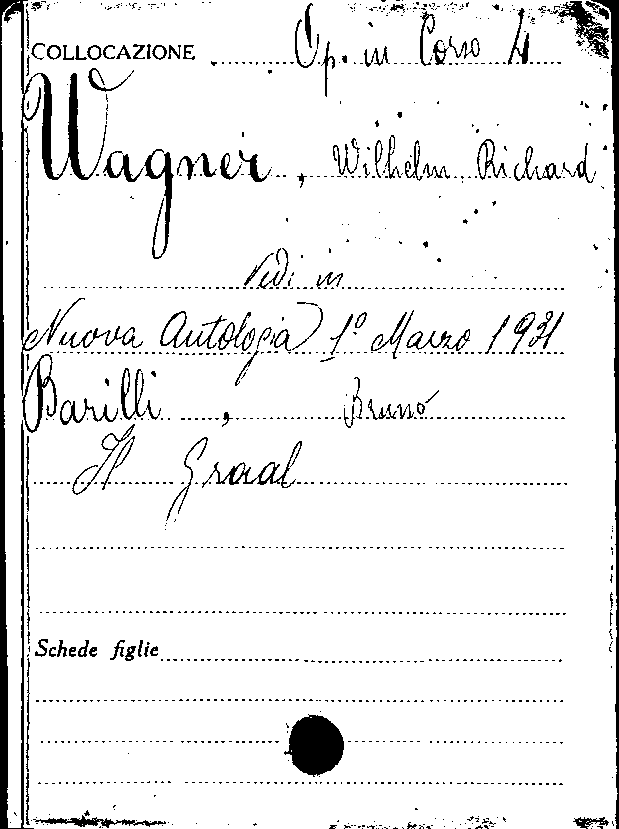 COLLOCAZIONE Op. in Corso 4
Wagner, Wilhelm Richard
Vedi in
Nuova Antologia 1º Marzo 1931
Barilli, Bruno
Il Graal
Schede figlie